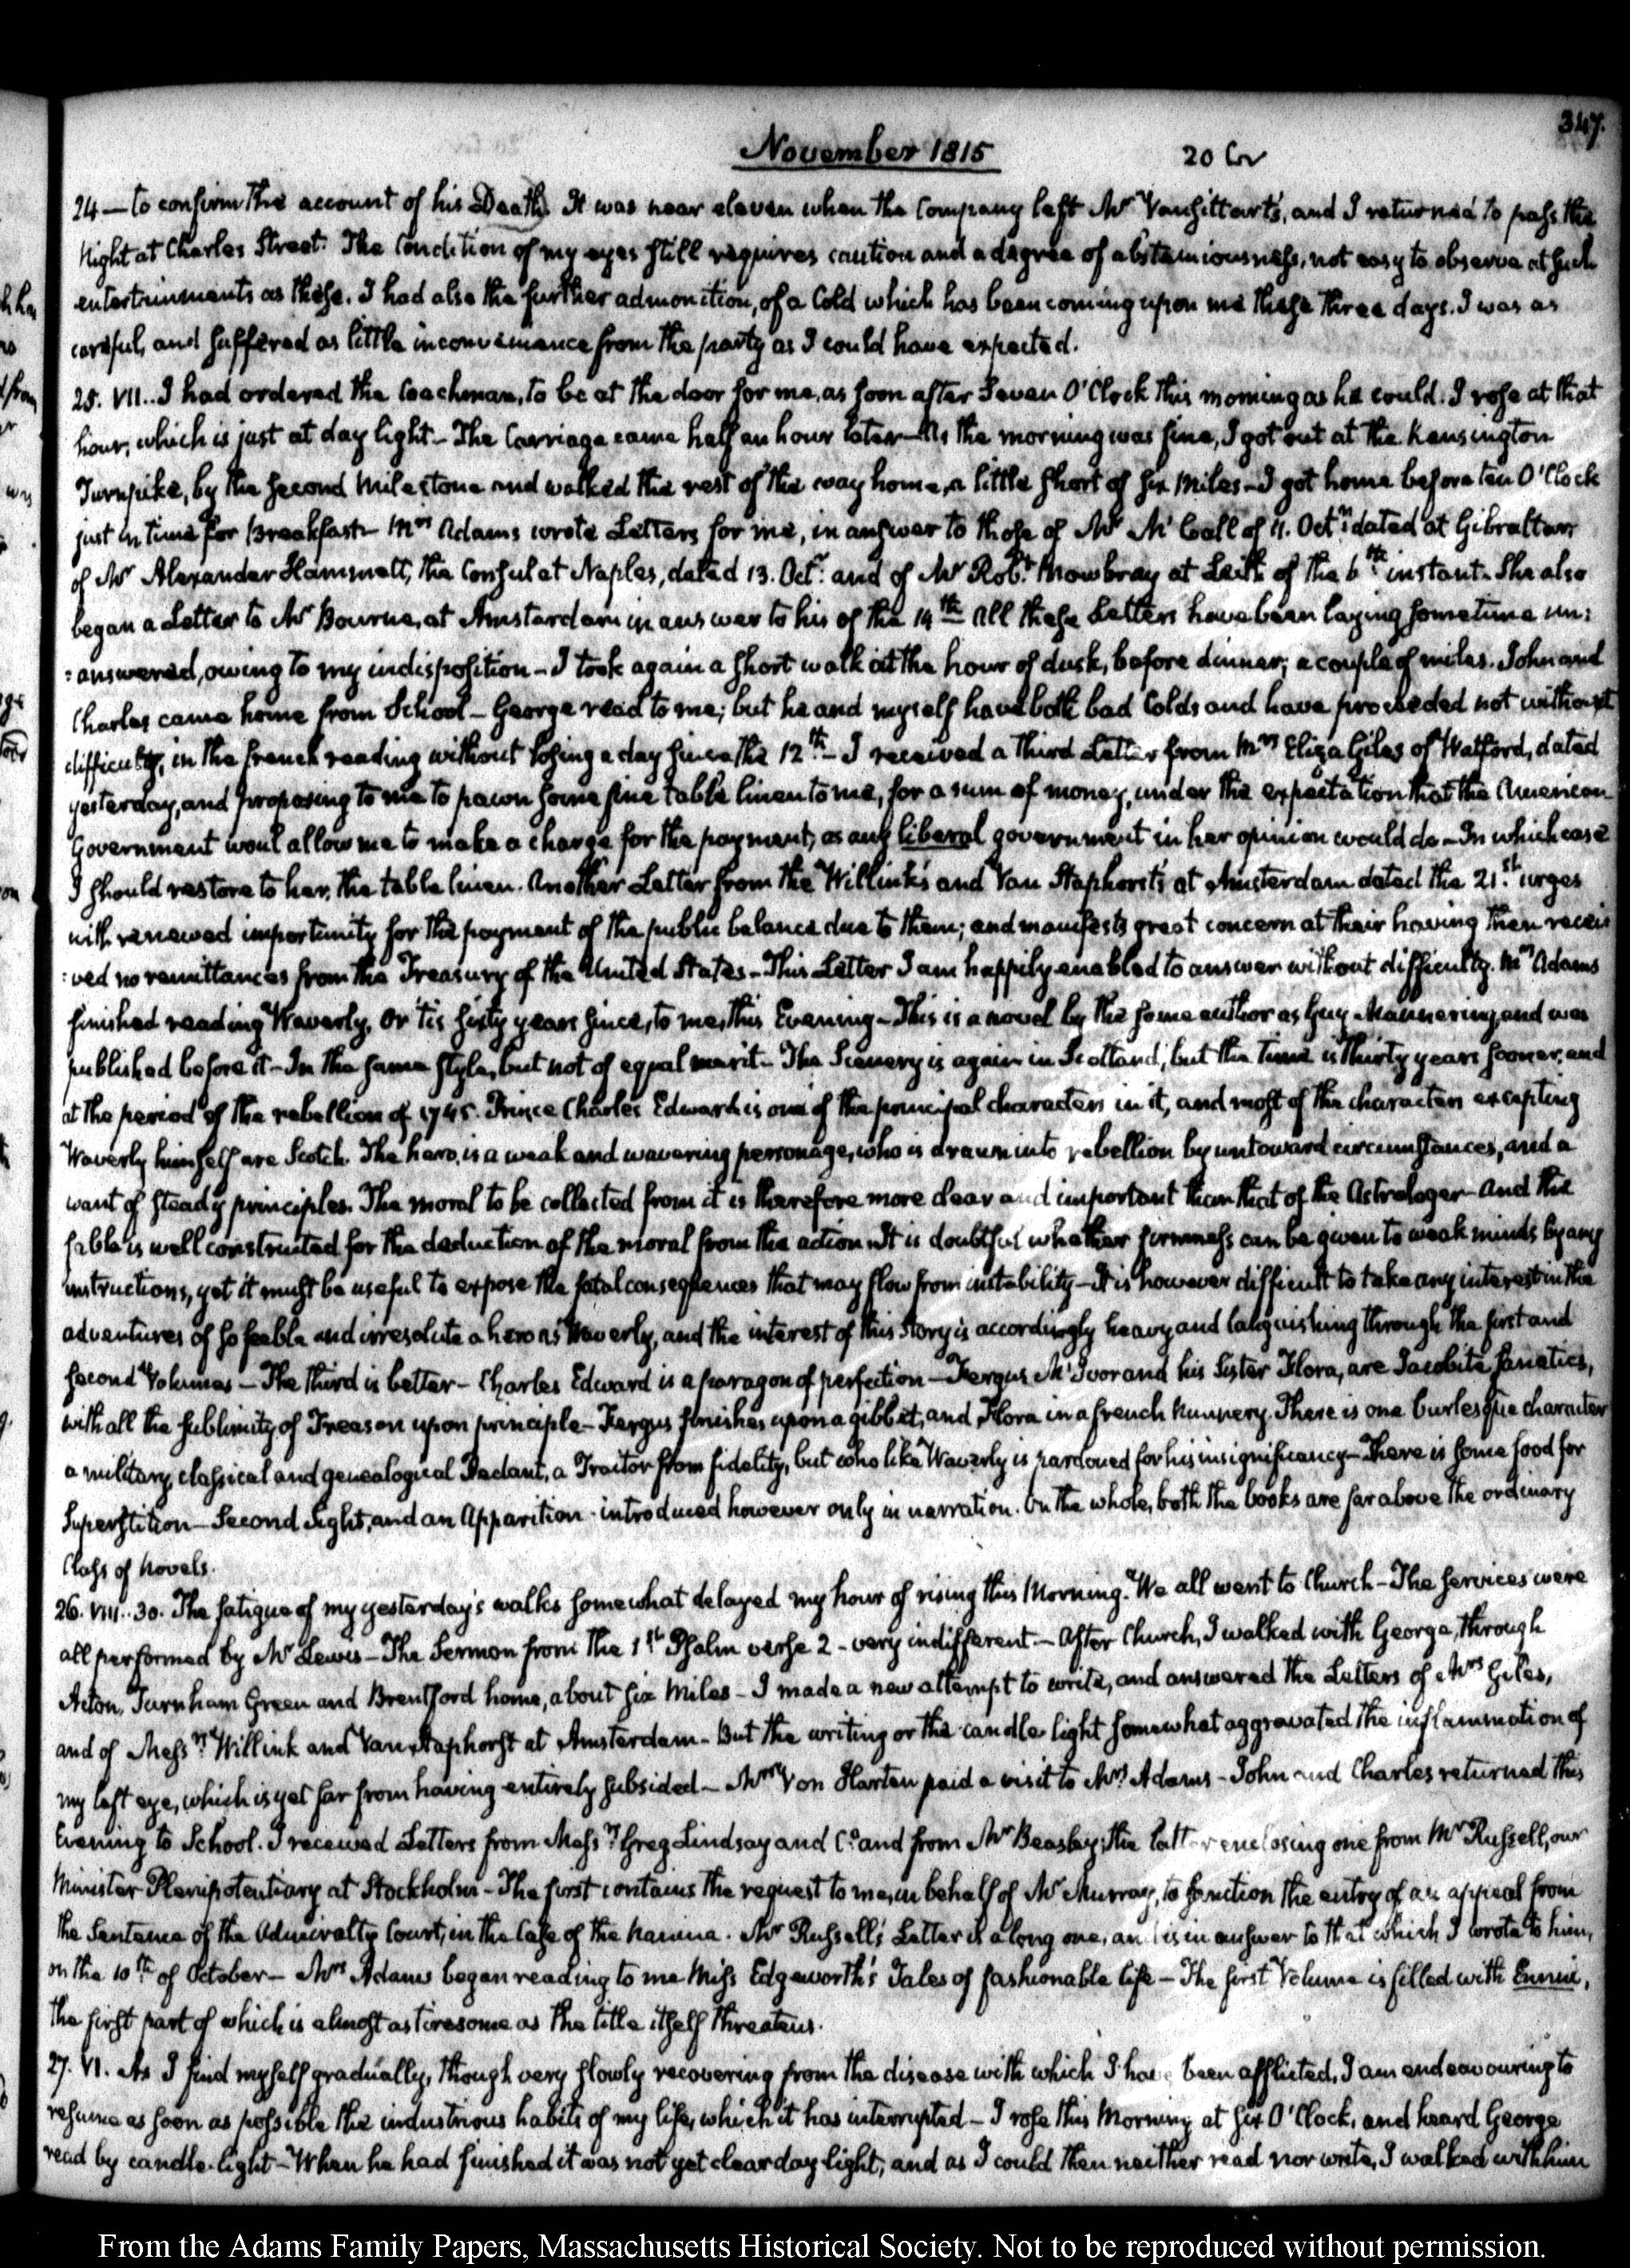 347.
November 1815
20 Gr
24 — to confirm the account of his Death. It was near eleven when the Company left Mr Vansittart's, and I returned to pass the
Night at Charles Street. The Condition of my eyes still requires caution and a degree of abstemiousness, not easy to observe at such
entertainments as these. I had also the further admonition, of a Cold which has been coming upon me these three days. I was as
careful, and suffered as little inconvenience from the party as I could have expected.
25. VII.. I had ordered the Coachman, to be at the door for me, as soon after Seven O'Clock this morning as he could. I rose at that
hour, which is just at day light — The Carriage came half an hour later — As the morning was fine, I got out at the Kensington
Turnpike, by the second Milestone and walked the rest of the way home, a little short of six Miles — I got home before ten O'Clock
just in time for Breakfast — Mrs Adams wrote Letters for me, in answer to those of Mr McCall of 11. Octr. dated at Gibraltar,
of Mr Alexander Hammett, the Consul at Naples, dated 13. Octr. and of Mr Robt. Mowbray at Leith of the 6th instant. She also
began a Letter to Mr Bourne, at Amsterdam in answer to his of the 14th All these Letters have been laying sometime un:
:answered, owing to my indisposition — I took again a short walk at the hour of dusk, before dinner; a couple of miles. John and
Charles came home from School — George read to me; but he and myself have both bad Colds and have proceeded not without
difficulty, in the french reading without losing a day since the 12th — I received a third Letter from Mrs Eliza Giles of Watford, dated
yesterday, and proposing to me to pawn some fine table linen to me, for a sum of money, under the expectation that the American
Government woul allow me to make a charge for the payment, as any liberal government in her opinion would do — In which case
I should restore to her, the table linen. Another Letter from the Willink's and Van Staphorst's at Amsterdam dated the 21st. urges
with renewed importunity for the payment of the public balance due to them; and manifests great concern at their having then recei
:ved no remittances from the Treasury of the United States — This Letter I am happily enabled to answer without difficulty. Mrs Adams
finished reading Waverly, or 'tis sixty years since, to me, this Evening — This is a novel by the same author as Guy Mannering, and was
published before it — In the same style, but not of equal merit — The Scenery is again in Scotland, but the time is thirty years sooner, and
at the period of the rebellion of 1745. Prince Charles Edward is one of the principal characters in it, and most of the characters excepting
Waverly himself are Scotch. The hero, is a weak and wavering personage, who is drawn into rebellion by untoward circumstances, and a
want of steady principles. The moral to be collected from it is therefore more clear and important than that of the Astrologer — And the
fable is well constructed for the deduction of the moral from the action. It is doubtful whether firmness can be given to weak minds by any
instructions, yet it must be useful to expose the fatal consequences that may flow from instability — It is however difficult to take any interest in the
adventures of so feeble and irresolute a hero as Waverly, and the interest of this Story is accordingly heavy and languishing through the first and
second Volumes — The third is better — Charles Edward is a paragon of perfection — Fergus McIvor and his Sister Flora, are Jacobite fanatics,
with all the sublimity of Treason upon principle — Fergus finishes upon a gibbet, and Flora in a french Nunnery. There is one burlesque character
a military, classical and genealogical Pedant, a Traitor from fidelity, but who like Waverly is pardoned for his insignificancy — There is some food for
Superstition — Second Sight, and an Apparition — introduced however only in narration. On the whole, both the books are far above the ordinary
Class of Novels.
26. VIII..30. The fatigue of my yesterday's walks somewhat delayed my hour of rising this Morning. We all went to Church — The services were
all performed by Mr Lewis — The Sermon from the 1st Psalm verse 2 — very indifferent — After Church, I walked with George, through
Acton, Turnham Green and Brentford home, about six Miles — I made a new attempt to write, and answered the Letters of Mrs Giles,
and of Messrs Willink and Van Staphorst at Amsterdam — But the writing or the candle light somewhat aggravated the inflammation of
my left eye, which is yet far from having entirely subsided — Mrs Von Harten paid a visit to Mrs Adams — John and Charles returned this
Evening to School. I received Letters from Messrs Greg Lindsay and Co. and from Mr Beasley; the latter enclosing one from Mr Russell, our
Minister Plenipotentiary at Stockholm — The first contains the request to me, in behalf of Mr Murray, to sanction the entry of an appeal from
the Sentence of the Admiralty Court, in the Case of the Nanina. Mr Russell's Letter is a long one, and is in answer to that which I wrote to him,
on the 10th of October — Mrs Adams began reading to me Miss Edgeworth's Tales of fashionable life — The first Volume is filled with Ennui,
the first part of which is almost as tiresome as the title itself threatens.
27. VI. As I find myself gradually, though very slowly recovering from the disease with which I have been afflicted, I am endeavouring to
resume as soon as possible the industrious habits of my life, which it has interrupted — I rose this Morning at six O'Clock, and heard George
read by candle-light — When he had finished it was not yet clear day light, and as I could then neither read nor write, I walked with him
From the Adams Family Papers, Massachusetts Historical Society. Not to be reproduced without permission.